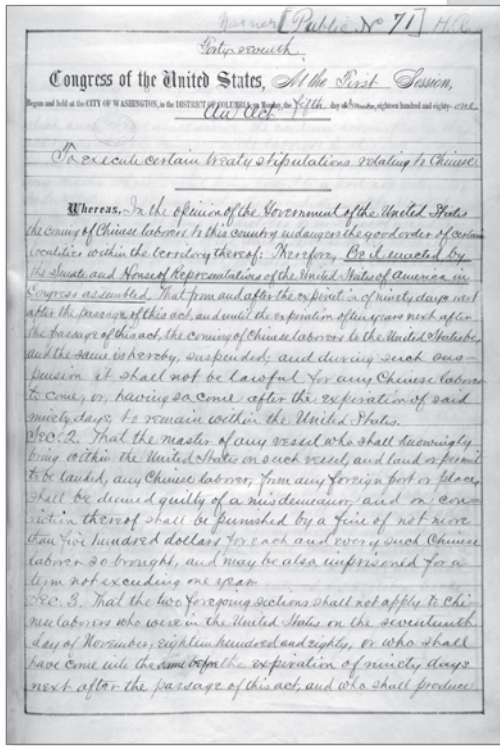 [Public No 71] H.R.
Forty-seventh
Congress of the United States, At the First Session,
Begun and held at the CITY OF WASHINGTON, in the DISTRICT OF COLUMBIA on Monday, the fifth day of December, eighteen hundred and eighty-one
An Act
To execute certain treaty stipulations relating to Chinese
Whereas, In the opinion of the Government of the United States
the coming of Chinese laborers to this country endangers the good order of certain
localities within the territory thereof: Therefore, Be it enacted by
the Senate and House of Representatives of the United States of America in
Congress assembled, That from and after the expiration of ninety days next
after the passage of this act, and until the expiration of ten years next after
the passage of this act, the coming of Chinese laborers to the United States be,
and the same is hereby, suspended; and during such sus-
pension it shall not be lawful for any Chinese laborer
to come, or, having so come after the expiration of said
ninety days, to remain within the United States.
Sec. 2. That the master of any vessel who shall knowingly
bring within the United States on such vessel, and land or permit
to be landed, any Chinese laborer, from any foreign port or place,
shall be deemed guilty of a misdemeanor, and on con-
viction thereof shall be punished by a fine of not more
than five hundred dollars for each and every such Chinese
laborer so brought, and may be also imprisoned for a
term not exceeding one year.
Sec. 3. That the two foregoing sections shall not apply to Chi-
nese laborers who were in the United States on the seventeenth
day of November, eighteen hundred and eighty, or who shall
have come into the same before the expiration of ninety days
next after the passage of this act, and who shall produce